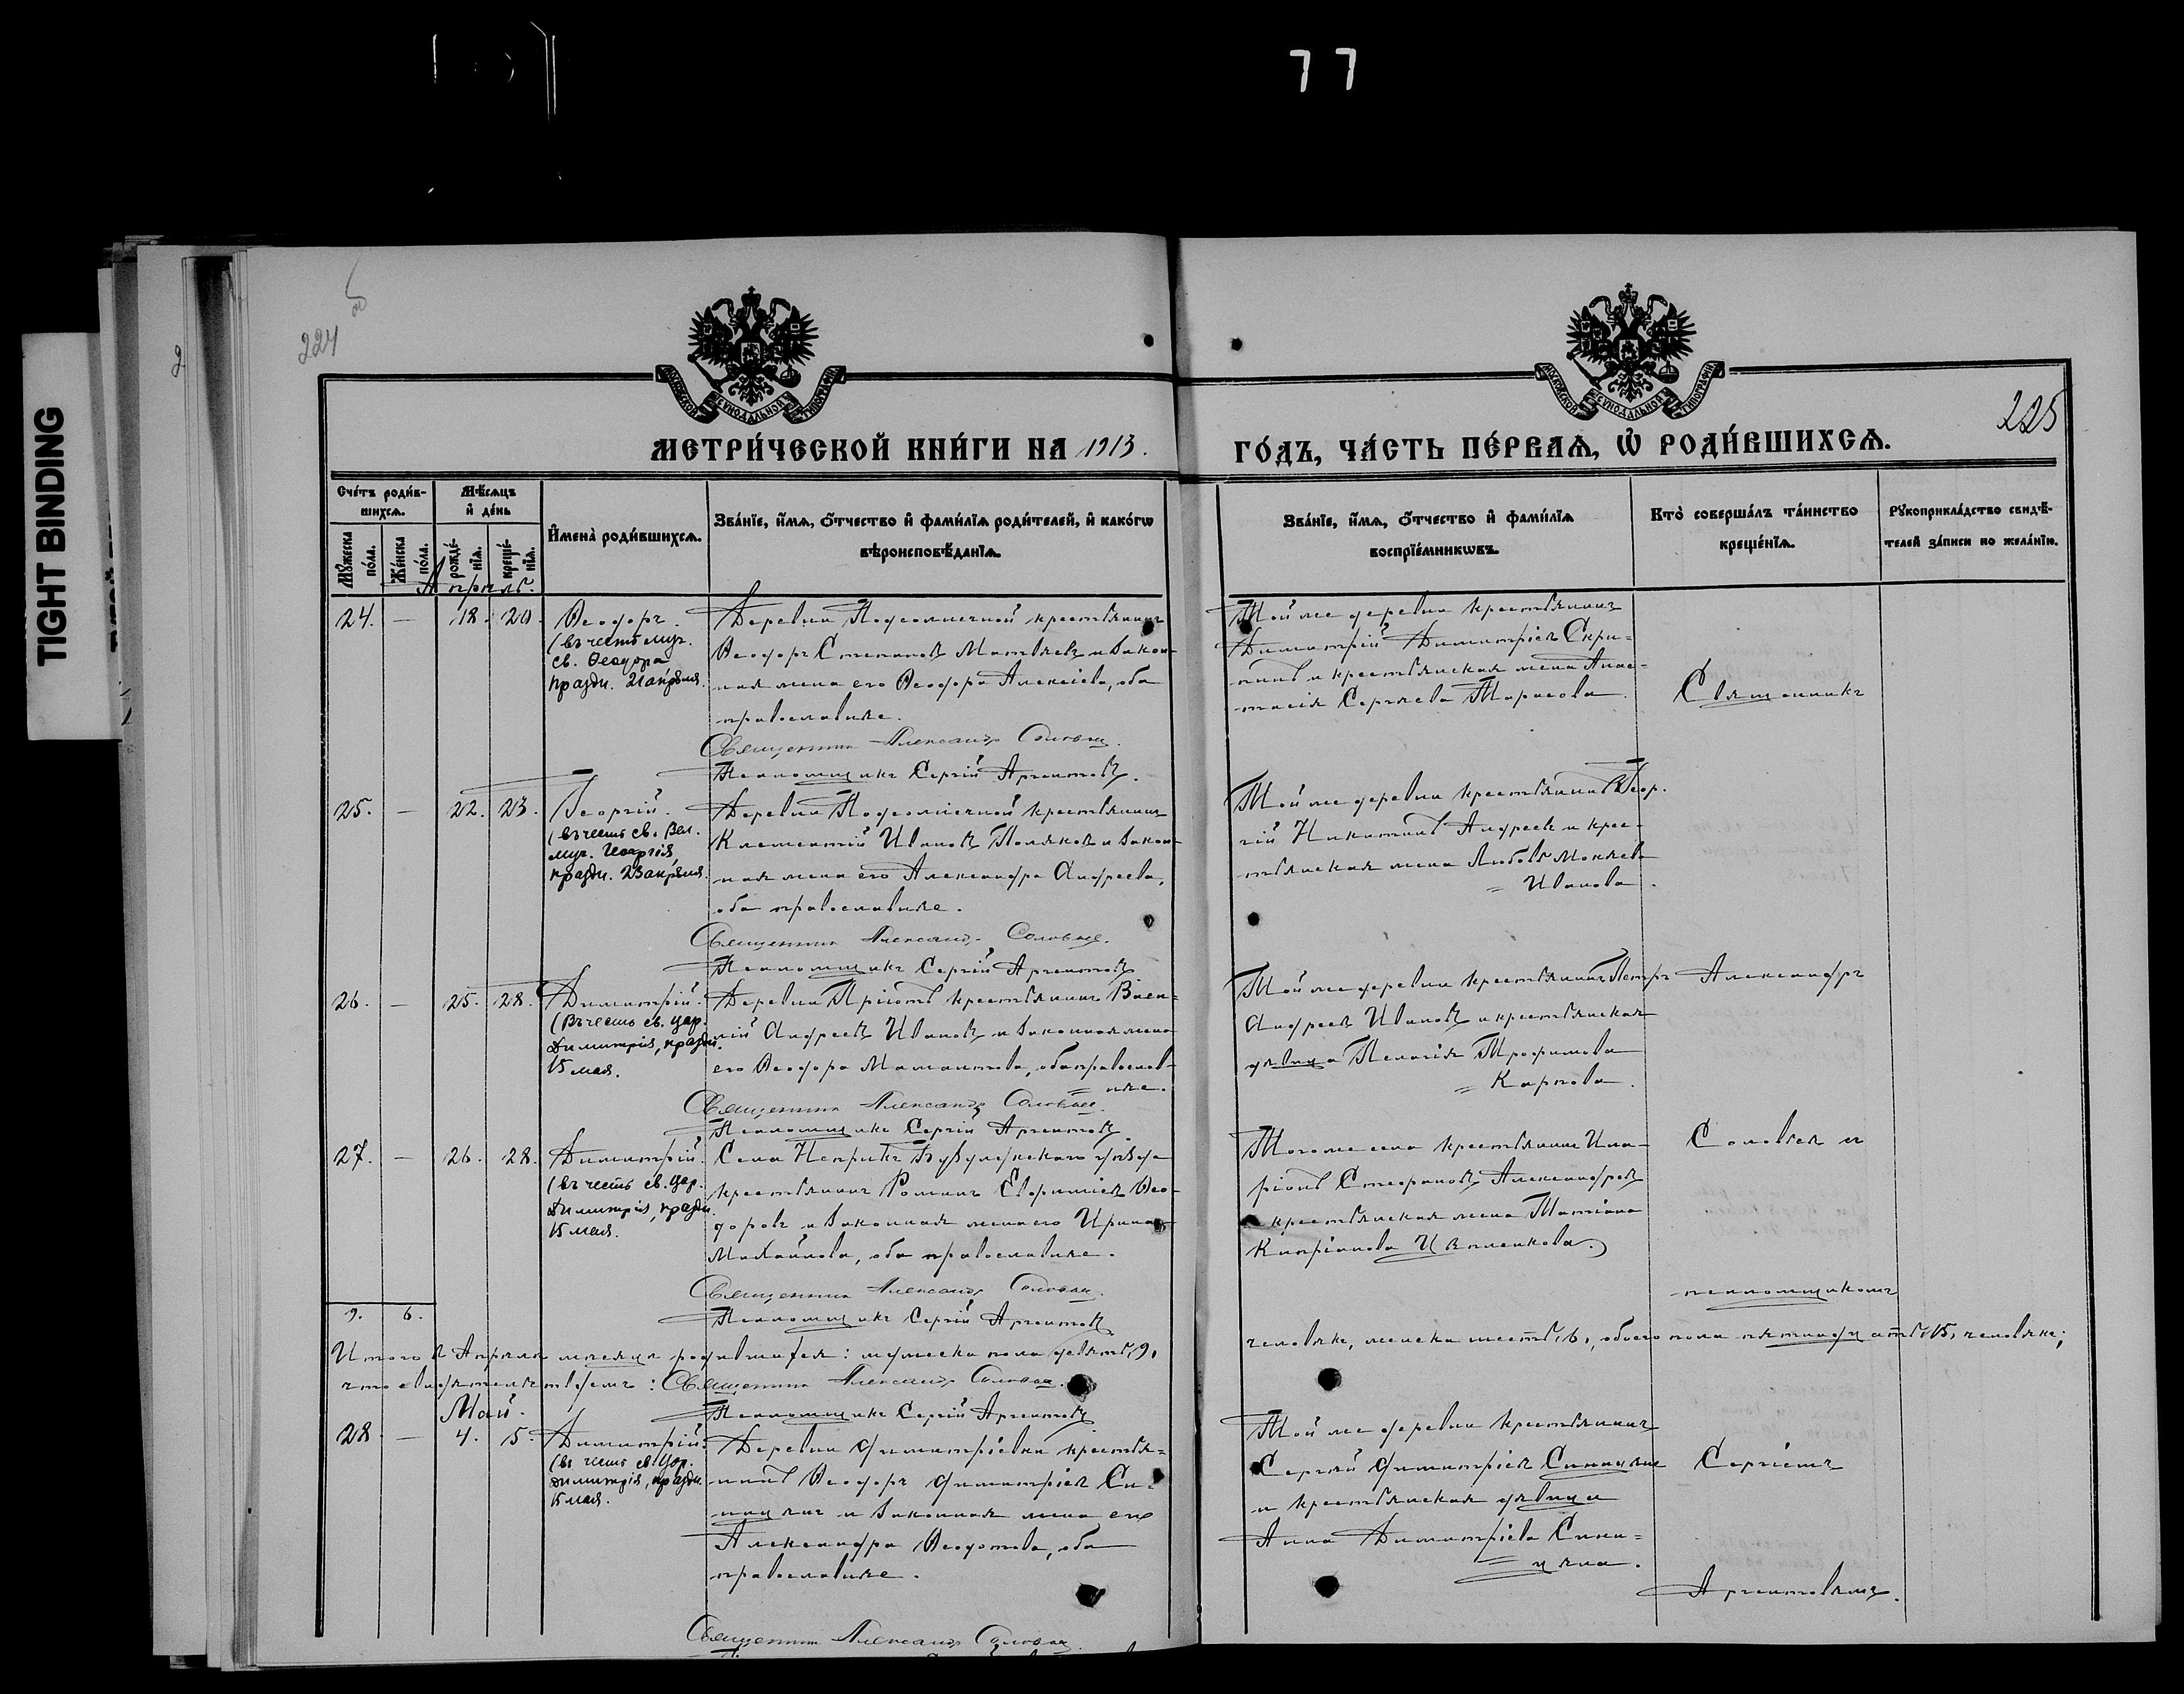 77
TIGHT BINDING
224 об
225
МОСКОВСКОЙ СУНОДАЛЬНОЙ ТИПОГРАФІИ
МОСКОВСКОЙ СУНОДАЛЬНОЙ ТИПОГРАФІИ
МЕТРИ́ЧЕСКОЙ КНИ́ГИ НА 1913.
ГО́ДЪ, ЧА́СТЬ ПЕ́РВАѦ, Ѡ҆ РОДИ́ВШИХСѦ.
Сче́тъ роди́в-
шихсѧ.
Мѣ́сѧцъ
и҆ де́нь
Мꙋ́жеска по́ла.
Же́нска по́ла.
рожде́-нїѧ.
креще́-нїѧ.
И҆мена̀ роди́вшихсѧ.
Зва́нїе, и҆́мѧ, ѻ҆́тчество и҆ фами́лїѧ роди́телей, и҆ како́гѡ
вѣроисповѣ́данїѧ.
Зва́нїе, и҆́мѧ, ѻ҆́тчество и҆ фами́лїѧ
воспрїе́мникѡвъ.
Кто̀ соверша́лъ та́инство
креще́нїѧ.
Рꙋкоприкла́дство свидѣ́-
телей за́писи по жела́нїю.
Апрѣль.
24. — 18. 20. Ѳеодоръ.
(въ честь муч.
св. Ѳеодора
праздн. 21 апрѣля.
Деревни Подсолнечной крестьянинъ
Ѳеодоръ Степановъ Матвѣевъ и закон-
ная жена его Ѳеодора Алексіева, оба
православные.
Священникъ Александръ Соловьев.
Псаломщикъ Сергій Аргентовъ.
Той же деревни крестьянинъ
Димитрій Димитріев Скри-
пинъ и крестьянская жена Анас-
тасія Сергѣева Тарасова.
Священникъ
25. — 22. 23. Георгій.
(въ честь св. Вел.
муч. Георгія,
праздн. 23 апрѣля.
Деревни Подсолнечной крестьянинъ
Климентій Ивановъ Поляковъ и закон-
ная жена его Александра Андреева,
оба православные.
Священникъ Александръ Соловьев.
Псаломщикъ Сергій Аргентовъ
Той же деревни крестьянинъ Геор-
гій Никитинъ Андреевъ и крес-
тьянская жена Любовь Мокѣева
= Иванова.
26. — 25. 28. Димитрій.
(въ честь св. цар.
Димитрія, праздн.
15 мая.
Деревни Пріютъ крестьянинъ Васи-
лій Андреевъ Ивановъ и законная жена
его Ѳеодора Мамантова, оба православ-
= ные.
Священникъ Александръ Соловьев.
Псаломщикъ Сергій Аргентовъ
Той же деревни крестьянинъ Петръ
Андреевъ Ивановъ и крестьянская
дѣвица Пелагія Трофимова
= Карпова.
Александръ
27. — 26. 28. Димитрій.
(въ честь св. цар.
Димитрія, праздн.
15 мая.
Села Неприкъ Бузулукскаго уѣзда
крестьянинъ Романъ Евфиміевъ Ѳео-
доровъ и законная жена его Ирина
Михайлова, оба православные.
Священникъ Александръ Соловьев.
Псаломщикъ Сергій Аргентовъ
Того же села крестьянинъ Ила-
ріонъ Стефановъ Александровъ
и крестьянская жена Татіана
Кипріанова
Соловьев и
псаломщикомъ
9. 6.
Итого в Апрѣлѣ мѣсяцѣ родившихся: мужеска пола девять, 9,
человѣкъ, женска шесть, 6, обоего пола пятнадцать, 15, человѣкъ;
что свидѣтельствуемъ: Священникъ Александръ Соловьев.
Псаломщикъ Сергій Аргентовъ
Май.
28 — 4. 5. Димитрій.
(въ честь св. Цар.
Димитрія, праздн.
15 мая.
Деревни Димитріевки крестья-
нинъ Ѳеодоръ Димитріев Си-
ницынъ и законная жена его
Александра Ѳеодотова, оба
православные.
Священникъ Александръ Соловьев.
Той же деревни крестьянинъ
Сергѣй Димитріев Синицынъ
и крестьянская дѣвица
Анна Димитріева Сини-
= цына.
Сергіемъ
Аргентовымъ.